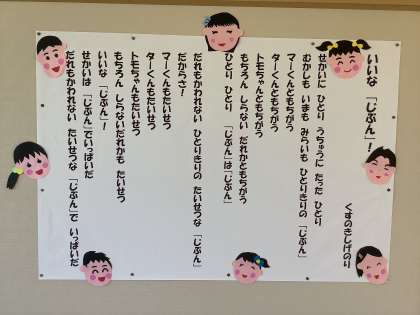 いいな「じぶん」!
くすのきしげのり
せかいに ひとり うちゅうに たった ひとり
むかしも いまも みらいも ひとりきりの「じぶん」
マーくんともちがう
ターくんともちがう
トモちゃんともちがう
もちろん しらない だれかともちがう
ひとり ひとり 「じぶん」は「じぶん」
だれもかわれない ひとりきりの たいせつな「じぶん」
だからさ!
マーくんもたいせつ
ターくんもたいせつ
トモちゃんもたいせつ
もちろん しらないだれかも たいせつ
いいな「じぶん」!
せかいは「じぶん」でいっぱいだ
だれもかわれない たいせつな「じぶん」で いっぱいだ